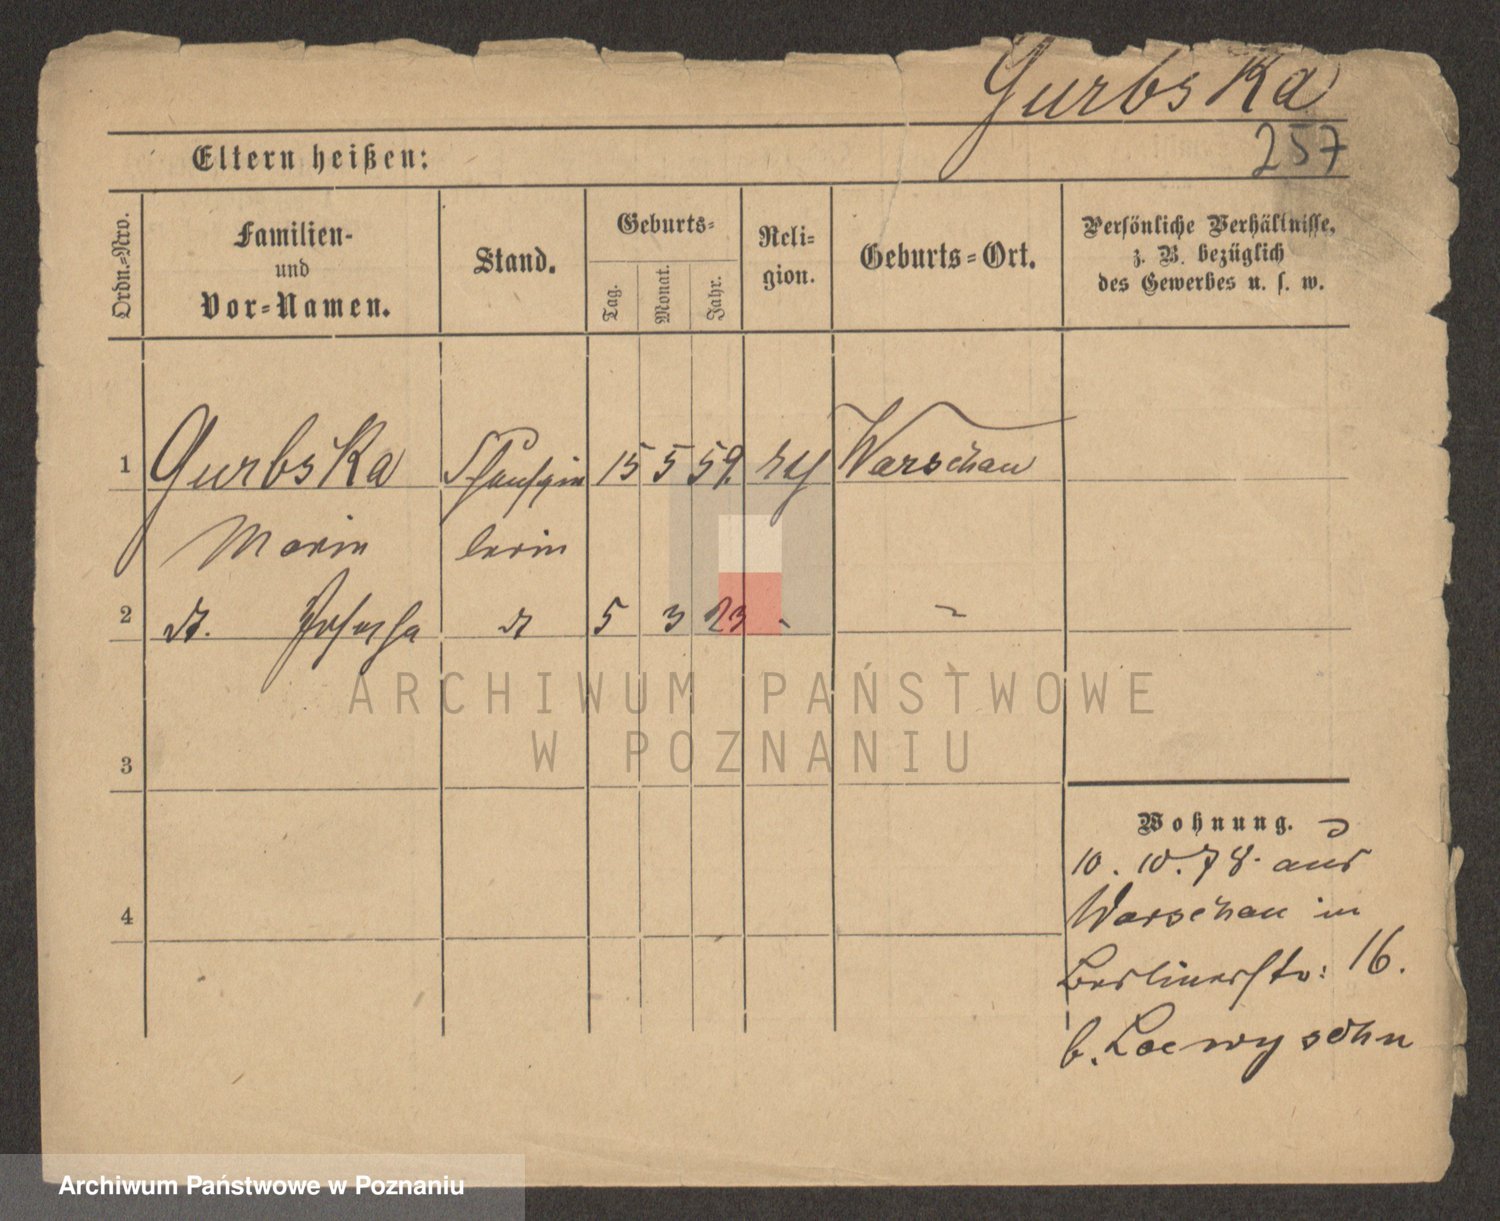 Gurbska
257
Eltern heißen:
Ordn.-Nro.
Familien-
und
Vor-Namen.
Stand.
Geburts-
Tag.
Monat.
Jahr.
Reli-
gion.
Geburts-Ort.
Persönliche Verhältnisse,
z. B. bezüglich
des Gewerbes u. s. w.
1 Gurbska Schauspie 15 5 59. Warschau
Marie lerin
2 dt. Josepha dt 5 3 23 - -
ARCHIWUM PAŃSTWOWE
W POZNANIU
3
4
Wohnung.
10. 10. 78. aus
Warschau in
Berlinerstr: 16.
b. Loewysohn
Archiwum Państwowe w Poznaniu